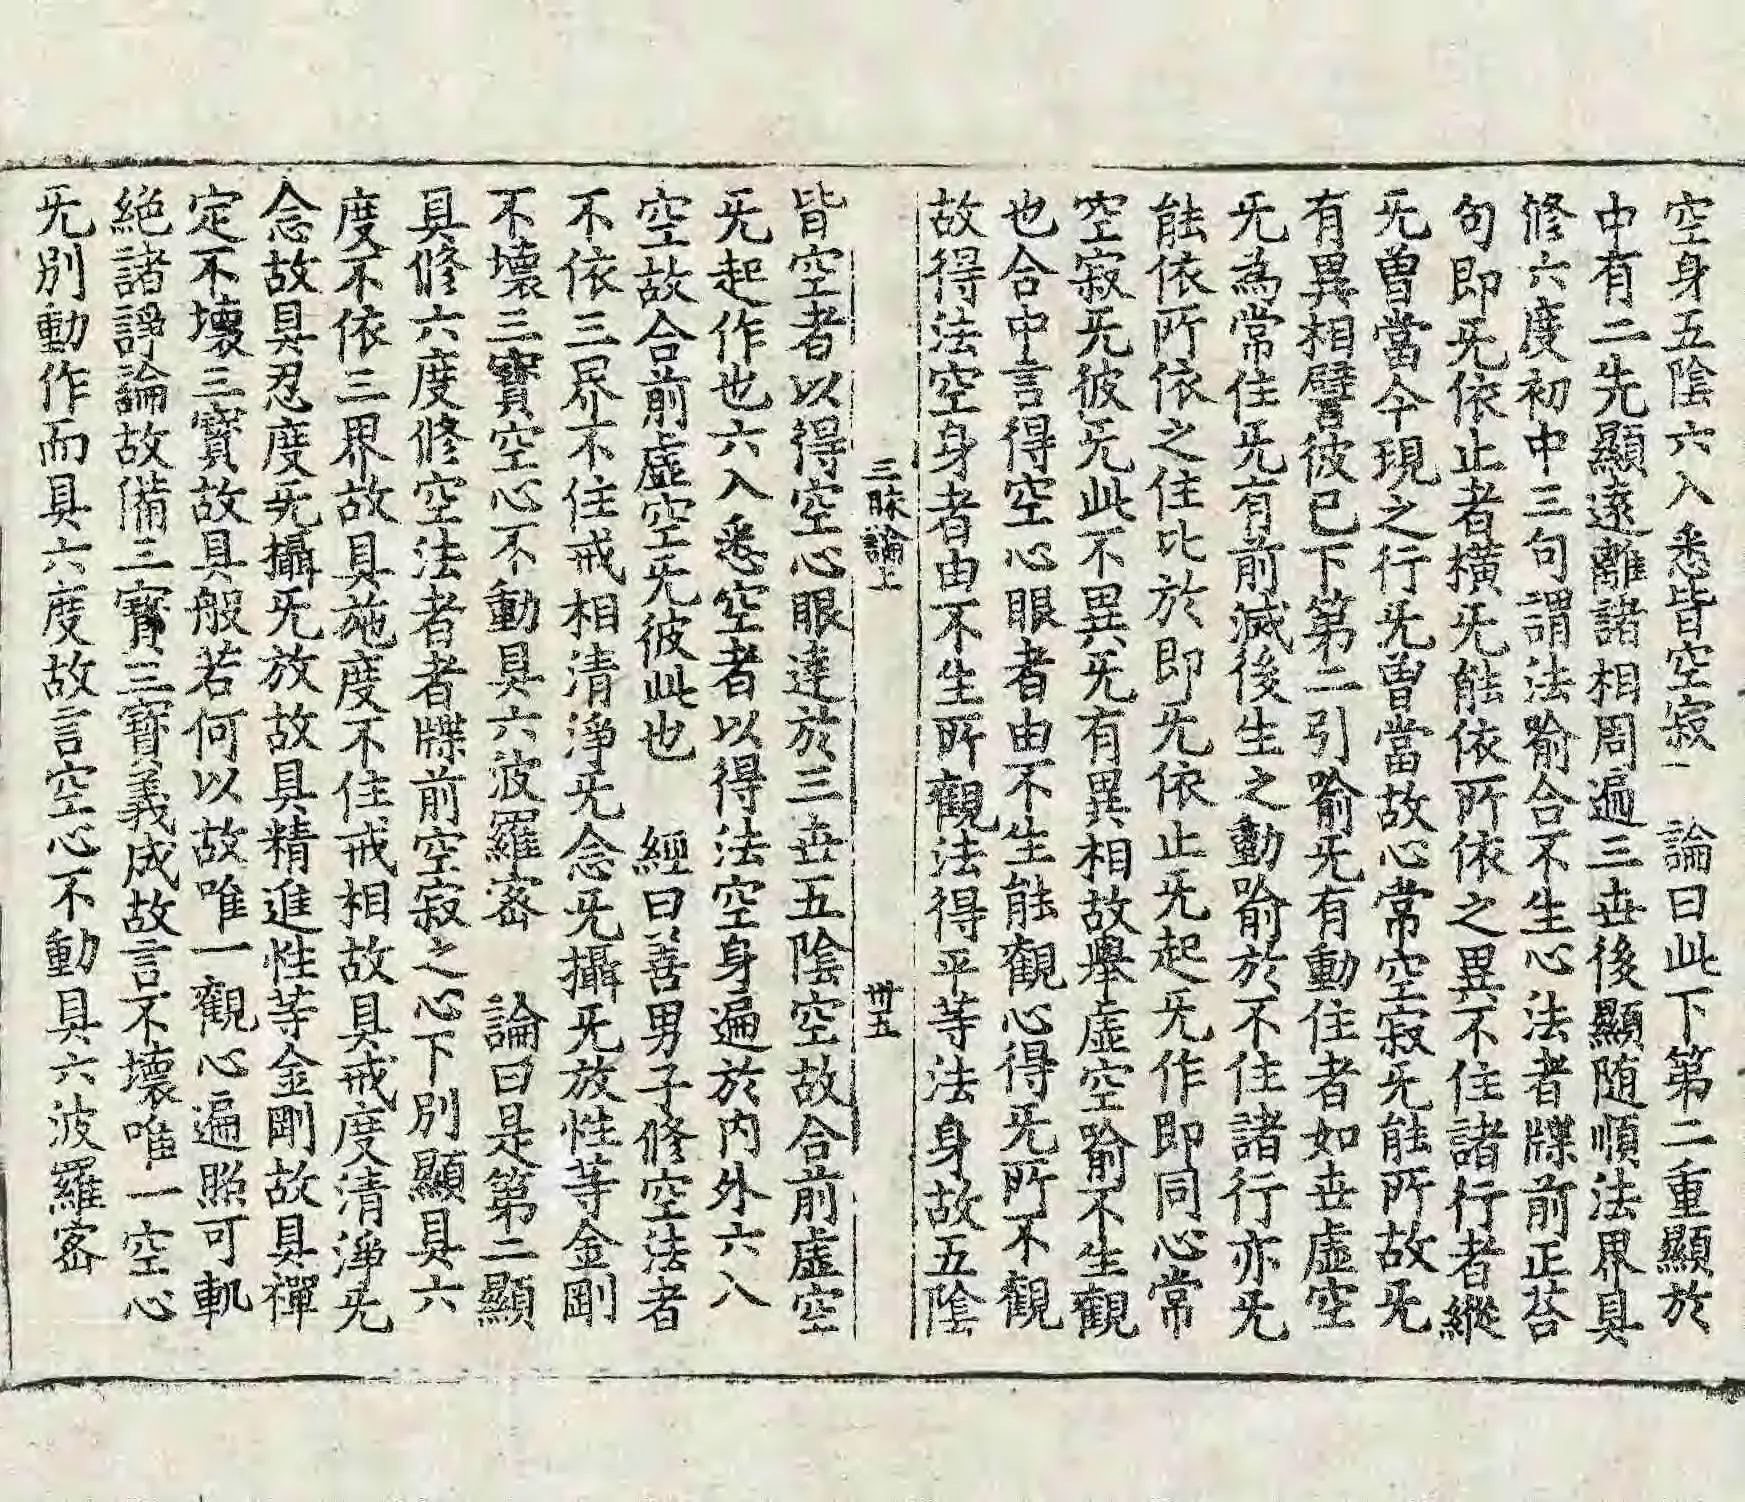 空身五陰六入悉皆空寂　論曰此下第二重顯於
中有二先顯遠離諸相周遍三世後顯随順法界具
修六度初中三句謂法喻合不生心法者牒前正荅
句即旡依止者横旡能依所依之異不住諸行者縱
旡曽當今現之行旡曽當故心常空寂旡能所故旡
有異相譬彼已下第二引喻旡有動住者如世虛空
旡為常住旡有前滅後生之動喻於不住諸行亦旡
能依所依之住比於即旡依止旡起旡作即同心常
空寂旡彼旡此不異旡有異相故舉虛空喻不生觀
也合中言得空心眼者由不生能觀心得旡所不觀
故得法空身者由不生所觀法得平等法身故五陰
三昧論上　卅五
皆空者以得空心眼達於三世五陰空故合前虛空
旡起作也六入悉空者以得法空身遍於内外六入
空故合前虛空旡彼此也　經曰善男子修空法者
不依三界不住戒相清淨旡念旡攝旡放性等金剛
不壞三寶空心不動具六波羅宻　論曰是第二顯
具修六度修空法者者牒前空寂之心下別顯具六
度不依三界故具施度不住戒相故具戒度清淨旡
念故具忍度旡攝旡放故具精進性等金剛故具禪
定不壞三寶故具般若何以故唯一觀心遍照可軌
絶諸諍論故備三寶三寶義成故言不壞唯一空心
旡別動作而具六度故言空心不動具六波羅宻